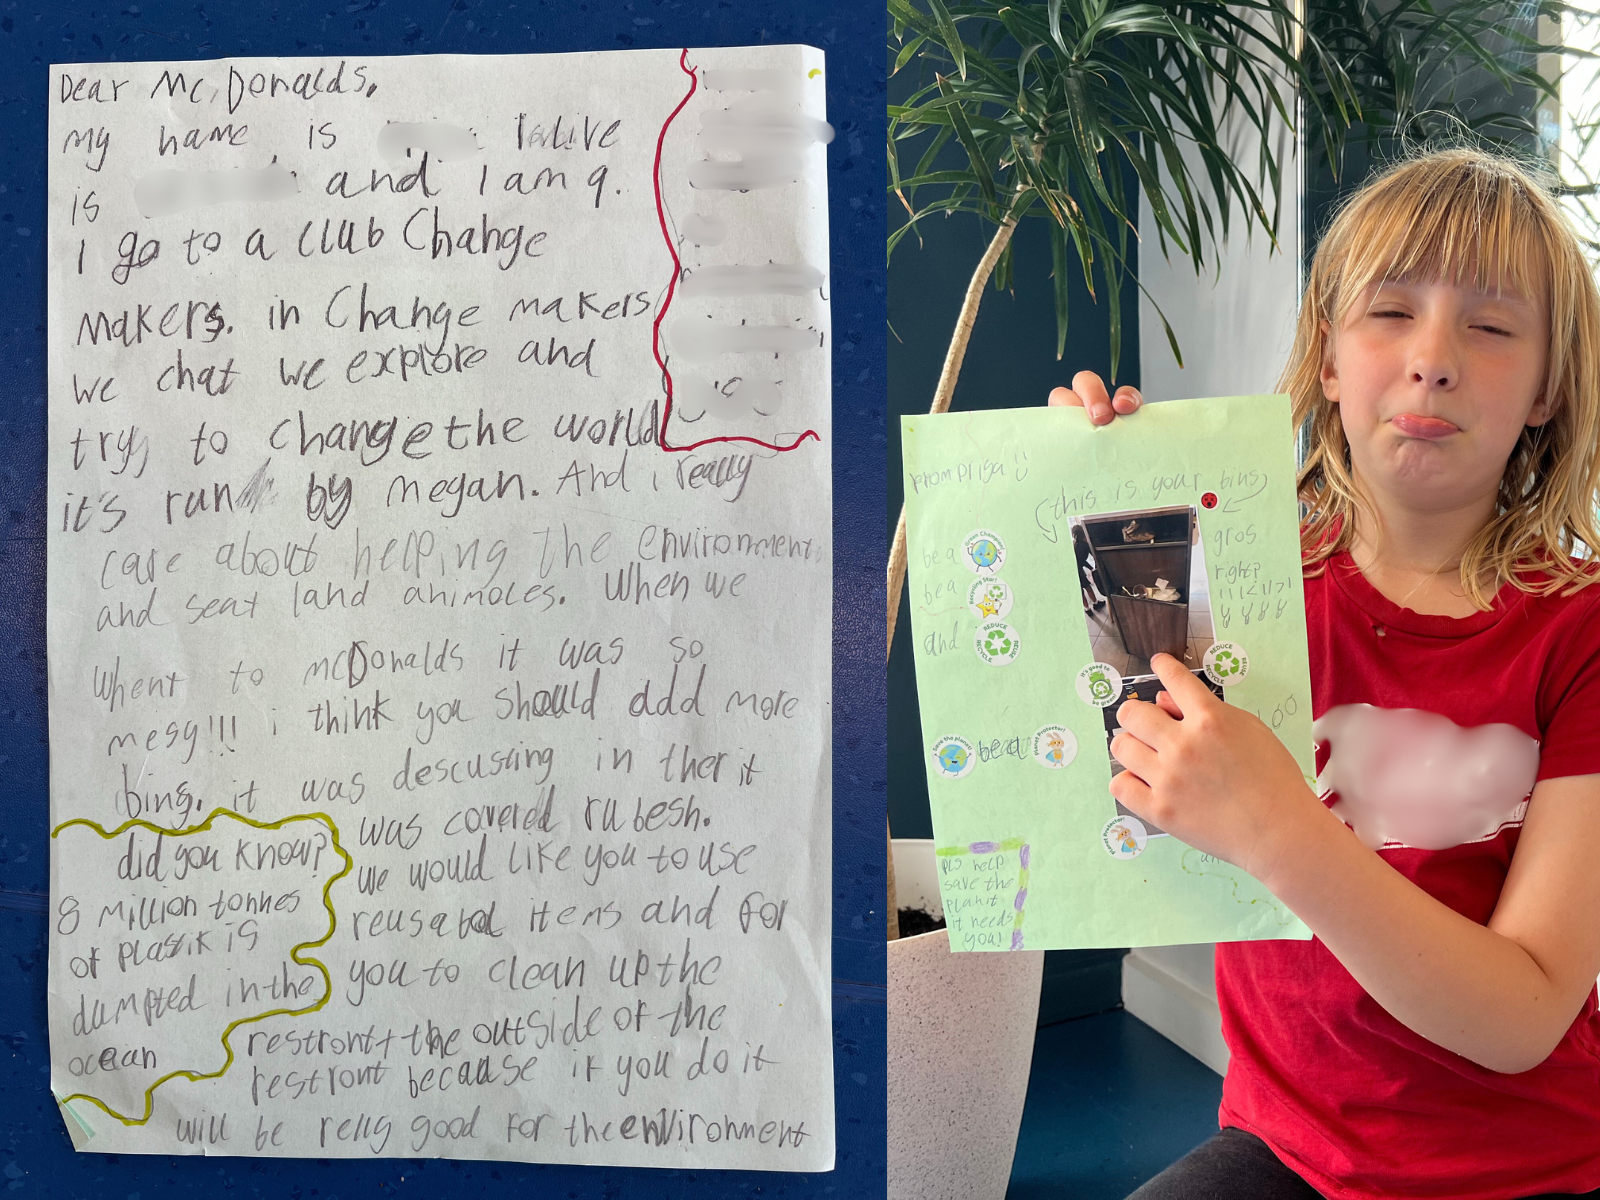 Dear Mc,Donalds.
my name is I live
is and I am 9.
I go to a club Change
makers. in Change makers
we chat we explore and
try to change the world
it's run by megan. And i really
care about helping the environment
and seat land animoles. When we
whent to mcDonalds it was so
mesy!!! i think you should add more
bing. it was descusting in ther it
was covered rubesh.
we would like you to use
reusabol items and for
you to clean up the
restront + the outside of the
restront because if you do it
will be relly good for the environment
did you know?
8 million tonnes
of plastik is
dumpted in the
ocean
from
this is your bins
be a Green Champion!
be a Recycling Star!
and REDUCE REUSE RECYCLE
gros
right?
It's good to be green!
REDUCE REUSE RECYCLE
Save the planet!
be a
Planet Protector!
Planet Protector!
pls help
save the
planit
it needs
you!